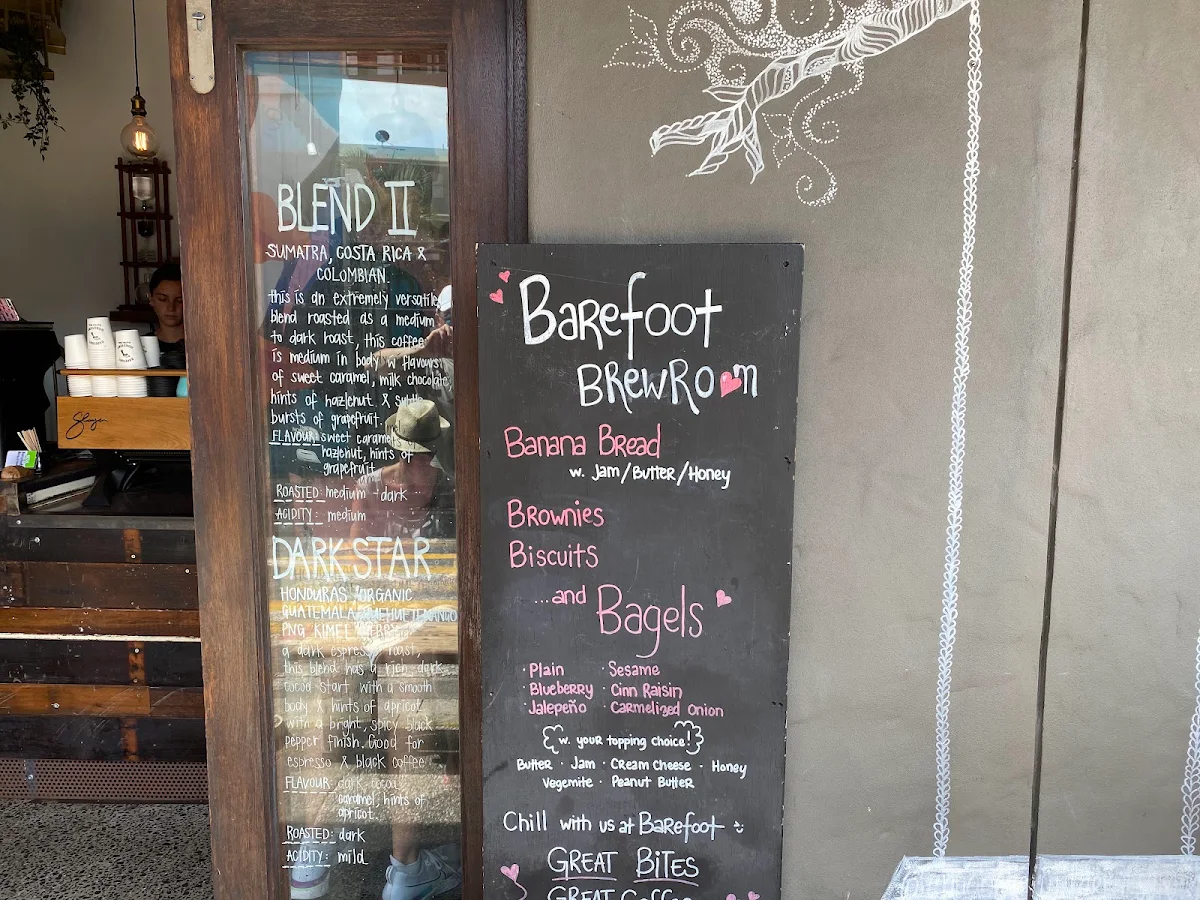 BLEND II
SUMATRA, COSTA RICA &
COLOMBIAN.
this is an extremely versatile
blend roasted as a medium
to dark roast, this coffee
is medium in body w flavours
of sweet caramel, milk chocolate
hints of hazlenut. & subtle
bursts of grapefruit.
FLAVOUR: sweet caramel
hazlenut, hints of
grapefruit
ROASTED: medium - dark
ACIDITY: medium
DARK STAR
HONDURAS ORGANIC
GUATEMALA HUEHUETENANGO
PNG KIMEL
a dark espresso roast,
this blend has a rich dark
cocoa start with a smooth
body & hints of apricot
with a bright, spicy black
pepper finish. Good for
espresso & black coffee
FLAVOUR: dark cocoa
caramel, hints of
apricot.
ROASTED: dark
ACIDITY: mild
Barefoot
BREWROOM
Banana Bread
w. Jam/Butter/Honey
Brownies
Biscuits
...and Bagels
· Plain · Sesame
· Blueberry · Cinn Raisin
· Jalepeño · Carmelized Onion
w. your topping choice!
Butter · Jam · Cream Cheese · Honey
Vegemite · Peanut Butter
Chill with us at Barefoot
GREAT BITES
GREAT Coffee